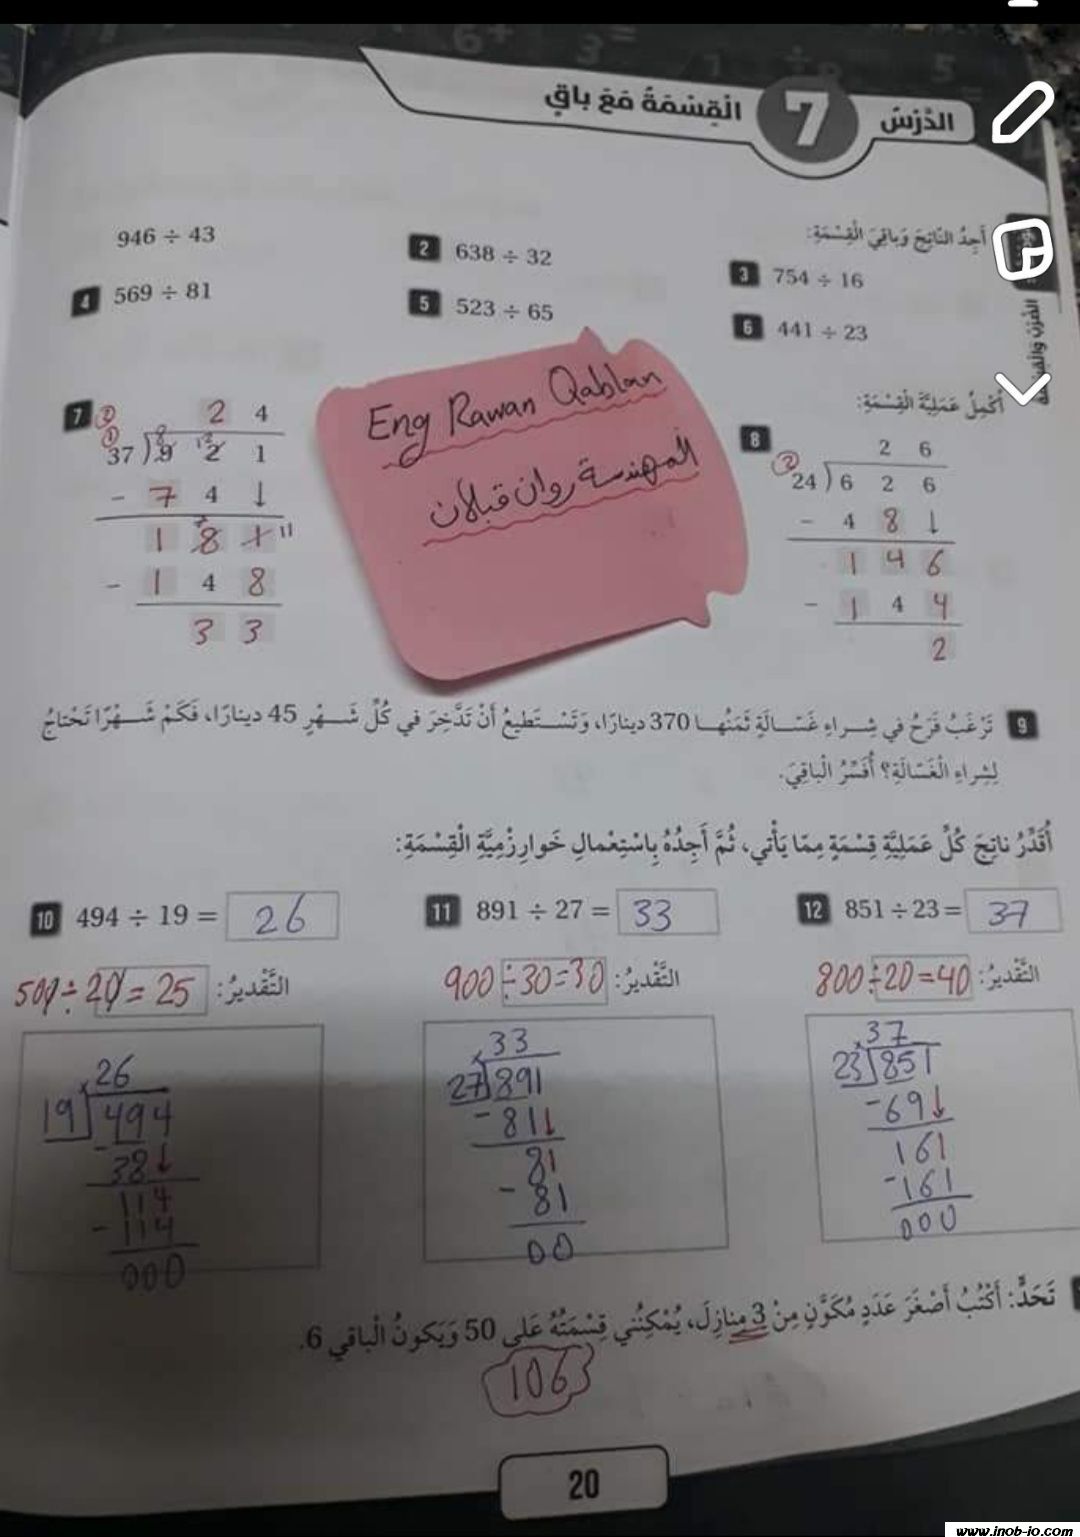 الدَّرْسُ 7 الْقِسْمَةُ مَعَ باقٍ
أَجِدُ النّاتِجَ وَباقِيَ الْقِسْمَةِ:
946 ÷ 43
2 638 ÷ 32
3 754 ÷ 16
4 569 ÷ 81
5 523 ÷ 65
6 441 ÷ 23
أُكْمِلُ عَمَلِيَّةَ الْقِسْمَةِ:
7
2 4
37 ) 9 2 1
- 7 4 ↓
1 8 1 11
- 1 4 8
3 3
Eng Rawan Qablan
المهندسة روان قبلان
8
2 6
24 ) 6 2 6
- 4 8 ↓
1 4 6
- 1 4 4
2
9 تَرْغَبُ فَرَحُ في شِراءِ غَسّالَةٍ ثَمَنُها 370 دينارًا، وَتَسْتَطيعُ أَنْ تَدَّخِرَ في كُلِّ شَهْرٍ 45 دينارًا، فَكَمْ شَهْرًا تَحْتاجُ
لِشِراءِ الْغَسّالَةِ؟ أُفَسِّرُ الْباقِيَ.
أُقَدِّرُ ناتِجَ كُلِّ عَمَلِيَّةِ قِسْمَةٍ مِمّا يَأْتي، ثُمَّ أَجِدُهُ بِاسْتِعْمالِ خَوارِزْمِيَّةِ الْقِسْمَةِ:
10 494 ÷ 19 = 26
11 891 ÷ 27 = 33
12 851 ÷ 23 = 37
التَّقْديرُ: 500 ÷ 20 = 25
التَّقْديرُ: 900 ÷ 30 = 30
التَّقْديرُ: 800 ÷ 20 = 40
26
19 494
- 38 ↓
114
- 114
000
33
27 891
- 81 ↓
81
- 81
00
37
23 851
- 69 ↓
161
- 161
000
تَحَدٍّ: أَكْتُبُ أَصْغَرَ عَدَدٍ مُكَوَّنٍ مِنْ 3 مَنازِلَ، يُمْكِنُني قِسْمَتُهُ عَلى 50 وَيَكونُ الْباقي 6.
106
20
www.inob-io.com